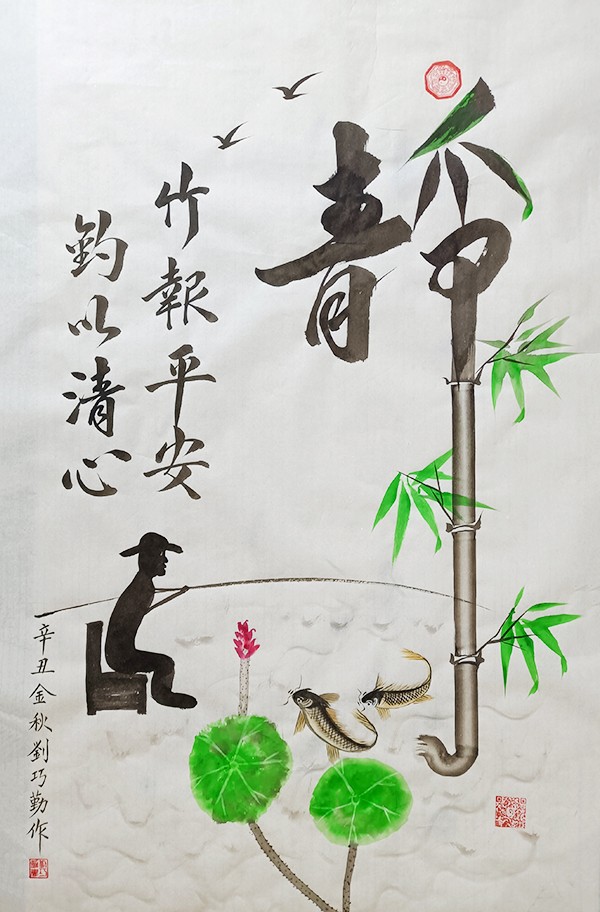 静
竹報平安
釣以清心
辛丑金秋劉巧勤作